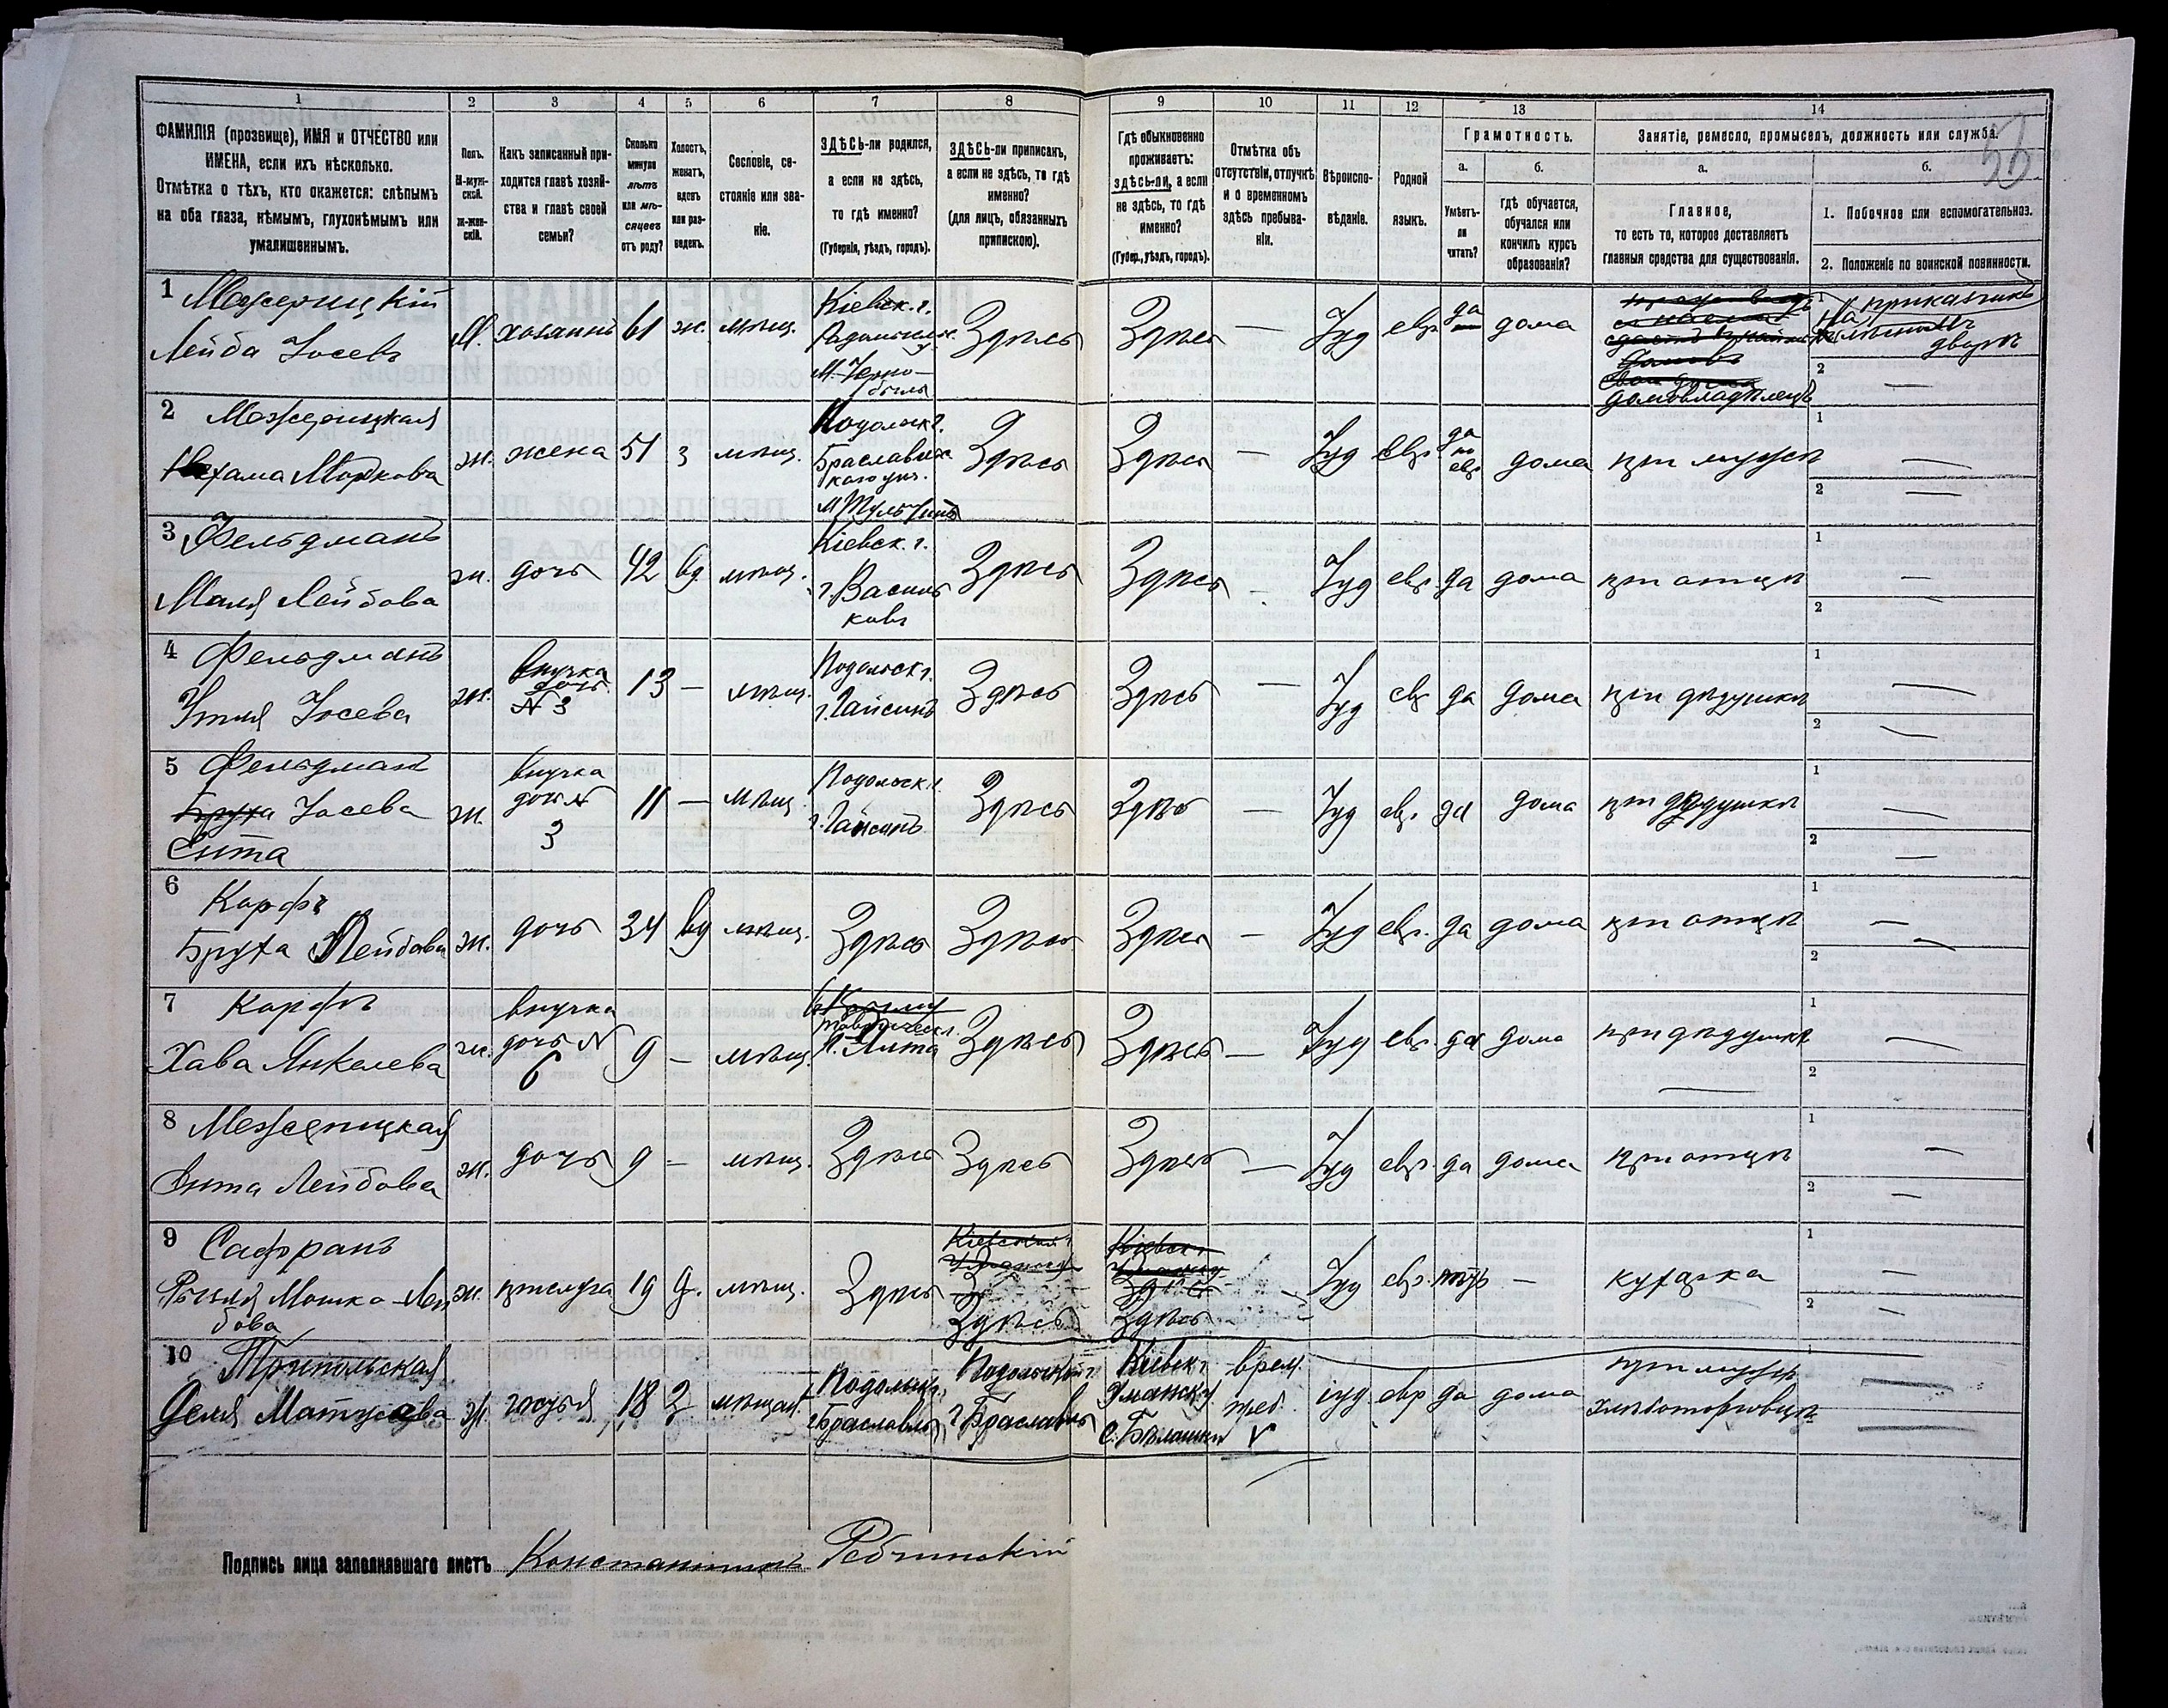 1 2 3 4 5 6 7 8 9 10 11 12 13 14
ФАМИЛІЯ (прозвище), ИМЯ и ОТЧЕСТВО или
ИМЕНА, если ихъ нѣсколько.
Отмѣтка о тѣхъ, кто окажется: слѣпымъ
на оба глаза, нѣмымъ, глухонѣмымъ или
умалишеннымъ.
Полъ.
М-муж-
ской.
ж-жен-
скій.
Какъ записанный при-
ходится главѣ хозяй-
ства и главѣ своей
семьи?
Сколько
минуло
лѣтъ
или мѣ-
сяцевъ
отъ роду?
Холостъ,
женатъ,
вдовъ
или раз-
веденъ.
Сословіе, со-
стояніе или зва-
ніе.
ЗДѢСЬ-ли родился,
а если не здѣсь,
то гдѣ именно?
(Губернія, уѣздъ, городъ).
ЗДѢСЬ-ли приписанъ,
а если не здѣсь, то гдѣ
именно?
(для лицъ, обязанныхъ
припискою).
Гдѣ обыкновенно
проживаетъ:
здѣсь-ли, а если
не здѣсь, то гдѣ
именно?
(Губер., уѣздъ, городъ).
Отмѣтка объ
отсутствіи, отлучкѣ
и о временномъ
здѣсь пребыва-
ніи.
Вѣроиспо-
вѣданіе.
Родной
языкъ.
Грамотность.
а. б.
Умѣетъ-
ли
читать?
гдѣ обучается,
обучался или
кончилъ курсъ
образованія?
Занятіе, ремесло, промыселъ, должность или служба.
а. б.
Главное,
то есть то, которое доставляетъ
главныя средства для существованія.
1. Побочное или вспомогательное.
2. Положеніе по воинской повинности.
1 Межерицкій
Лейба Іосевъ
М. хозяинъ 61 ж. мѣщ.
Кіевск. г.
М. Черно-
быль
Здѣсь Здѣсь — Іуд евр. да дома
домовладѣлецъ
1 приказчикъ
на
дворѣ
2 —
2 Межерицкая
Нехама Моркова
ж. жена 51 з мѣщ.
Подольск г.
Браславльс
каго уѣз.
М Тульчинъ
Здѣсь Здѣсь — Іуд евр. да
по
евр
дома при мужѣ
1 —
2 —
3 Фельдманъ
Маля Лейбова
ж. дочь 42 вд мѣщ.
Кіевск. г.
г. Василь
ковъ
Здѣсь Здѣсь — Іуд евр. да дома при отцѣ
1 —
2
4 Фельдманъ
Этля Іосева
ж. внучка
дочь
N 3
13 — мѣщ.
Подольск г.
г. Гайсинъ
Здѣсь Здѣсь — Іуд евр да дома при дѣдушкѣ
1 —
2 —
5 Фельдманъ
Бруха Іосева
Сита
ж. внучка
дочь N
3
11 — мѣщ
Подольск г.
г. Гайсинъ
Здѣсь Здѣсь — Іуд евр. да дома при дѣдушкѣ
1 —
2 —
6 Корфъ
Бруха Лейбова
ж. дочь 34 вд мѣщ. Здѣсь Здѣсь Здѣсь — Іуд евр. да дома при отцѣ
1 —
2 —
7 Корфъ
Хава Янкелева
ж. внучка
дочь N
6
9 — мѣщ.
Таврическ г.
г. Ялта
Здѣсь Здѣсь — Іуд евр. да дома при дѣдушкѣ
1 —
2
8 Межерицкая
Лейбова
ж. дочь 9 — мѣщ. Здѣсь Здѣсь Здѣсь — Іуд евр. да дома при отцѣ
1 —
2 —
9 Сафранъ
Мошка-Лей
бова
ж. прислуга 19 д. мѣщ. Здѣсь
Кіевской г.
Здѣсь
Кіевск г.
Здѣсь
— Іуд евр. — кухарка
1 —
2 —
10 Трипольская
Матусова
ж. гостья 18 З мѣщан.
Подольск г.
г. Браславль
Подольской г.
г. Браславль
Кіевск г.
Уманск у.
с.
врем.
преб.
V
іуд евр да дома
при мужѣ
хлѣботорговцѣ
Подпись лица заполнявшаго листъ Константинъ Ребчинскій